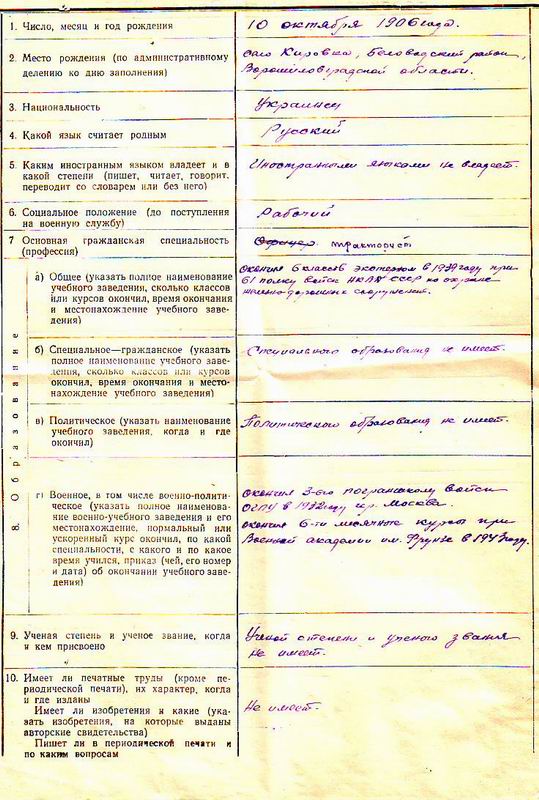 1. Число, месяц и год рождения
10 октября 1906 года.
2. Место рождения (по административному
делению ко дню заполнения)
село Кировка, Беловодский район,
Ворошиловградской области.
3. Национальность
Украинец
4. Какой язык считает родным
Русский
5. Каким иностранным языком владеет и в
какой степени (пишет, читает, говорит.
переводит со словарем или без него)
Иностранными языками не владеет.
6. Социальное положение (до поступления
на военную службу)
Рабочий
7 Основная гражданская специальность
(профессия)
Офицер. тракторист
8. Образование
а) Общее (указать полное наименование
учебного заведения, сколько классов
или курсов окончил, время окончания
и местонахождение учебного заве-
дения)
Окончил 6 классов экстерном в 1939 году при
61 полку войск НКВД СССР по охране
железно-дорожных сооружений.
б) Специальное—гражданское (указать
полное наименование учебного заве-
дения, сколько классов или курсов
окончил, время окончания и место-
нахождение учебного заведения)
Специального образования не имеет.
в) Политическое (указать наименование
учебного заведения, когда и где
окончил)
Политического образования не имеет.
г) Военное, в том числе военно-полити-
ческое (указать полное наименова-
ние военно-учебного заведения и его
местонахождение, нормальный или
ускоренный курс окончил, по какой
специальности, с какого и по какое
время учился, приказ (чей, его номер
и дата) об окончании учебного заве-
дения)
окончил 3-ю погранш­колу войск
ОГПУ в 1932 году гор. Москва.
окончил 6-ти месячные курсы при
Военной академии им. Фрунзе в 1943 году.
9. Ученая степень и ученое звание, когда
и кем присвоено
Ученой степени и ученого звания
не имеет.
10. Имеет ли печатные труды (кроме пе-
риодической печати), их характер, когда
и где изданы
Имеет ли изобретения и какие (ука-
зать изобретения, на которые выданы
авторские свидетельства)
Пишет ли в периодической печати и
по каким вопросам
Не имеет.